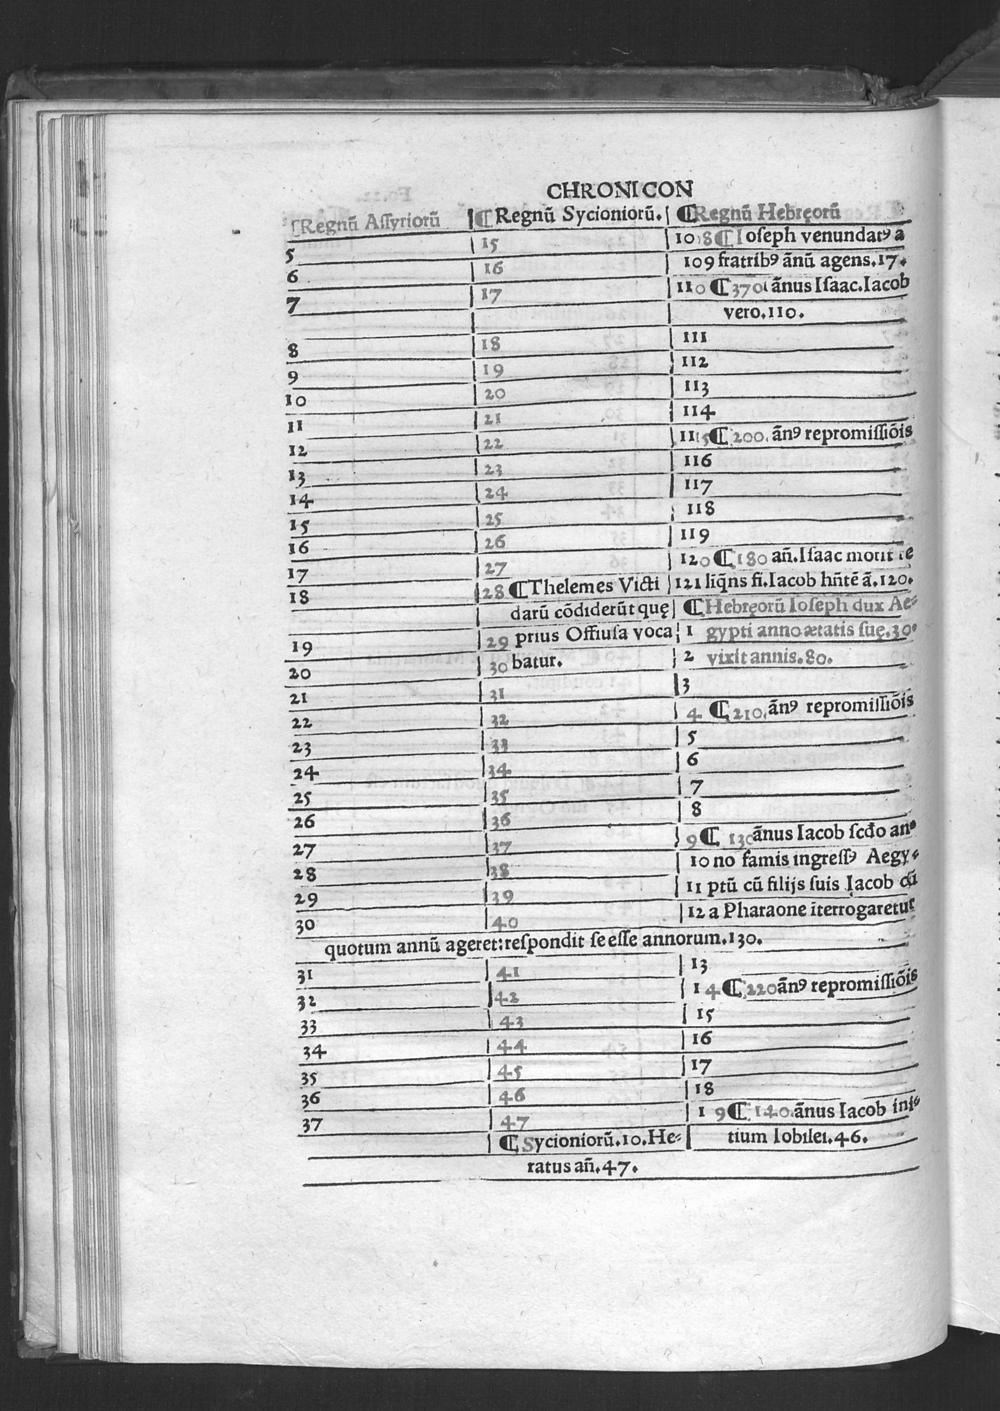 CHRONICON
⸿Regnū Aſſyriorū | ⸿Regnū Sycioniorū. | ⸿Regnū Hebręorū
5 | 15 | 108 ⸿Ioſeph venundatꝰ a
6 | 16 | 109 fratribꝰ ānū agens.17.
7 | 17 | 110 ⸿370 ānus Iſaac. Iacob
vero.110.
8 | 18 | 111
9 | 19 | 112
10 | 20 | 113
11 | 21 | 114
12 | 22 | 115 ⸿200. ānꝰ repromiſſiōis
13 | 23 | 116
14 | 24 | 117
15 | 25 | 118
16 | 26 | 119
17 | 27 | 120 ⸿180 añ. Iſaac morit re
18 | 28 ⸿Thelemes Victi | 121 liq̄ns fi. Iacob hn̄tē ā.120.
darū cōdiderūt quę | ⸿Hebręorū Ioſeph dux Ae⸗
19 | 29 prius Offiuſa voca | 1 gypti anno ætatis ſuę.30.
20 | 30 batur. | 2 vixit annis.80.
21 | 31 | 3
22 | 32 | 4 ⸿210. ānꝰ repromiſſiōis
23 | 33 | 5
24 | 34 | 6
25 | 35 | 7
26 | 36 | 8
27 | 37 | 9 ⸿130 ānus Iacob ſcd̄o an⸗
28 | 38 | 10 no famis ingreſſꝰ Aegy⸗
29 | 39 | 11 ptū cū filijs ſuis Iacob cū
30 | 40 | 12 a Pharaone īterrogaretur
quotum annū ageret: reſpondit ſe eſſe annorum.130.
31 | 41 | 13
32 | 42 | 14 ⸿220 ānꝰ repromiſſiōis
33 | 43 | 15
34 | 44 | 16
35 | 45 | 17
36 | 46 | 18
37 | 47 | 19 ⸿140. ānus Iacob ini⸗
⸿Sycioniorū.10. He⸗ | tium Iobilei.46.
ratus añ.47.